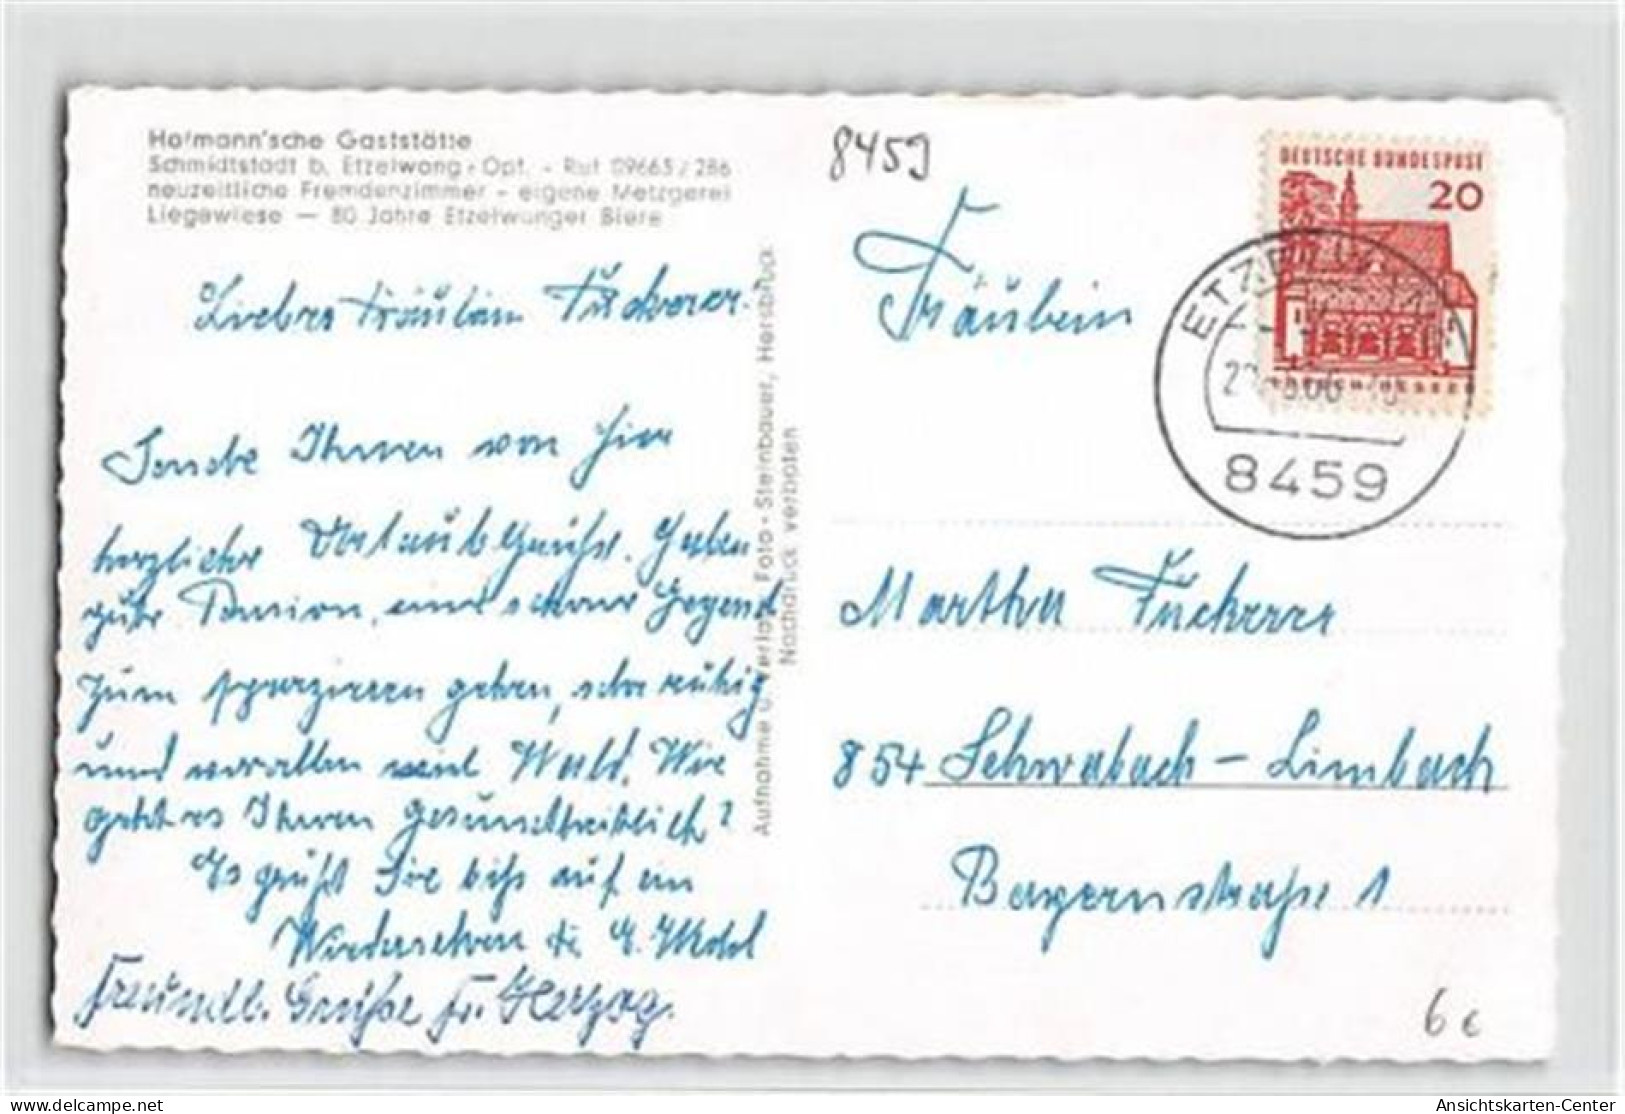 Hofmann'sche Gaststätte
Schmidtstadt b. Etzelwang - Opf. - Ruf 09665/286
neuzeitliche Fremdenzimmer - eigene Metzgerei
Liegewiese — 80 Jahre Etzelwanger Biere
8459
DEUTSCHE BUNDESPOST
20
8459
Liebes Fräulein Fückerer.
Sende Ihnen von hier
herzliche Urlaubsgrüße. Haben
gute Pension, eine schöne Gegend
zum spazieren gehen, sehr ruhig
und vor allem viel Wald. Wie
geht es Ihnen gesundheitlich?
Es grüßt Sie bis auf ein
Wiedersehen
Freundl. Grüße Fr. Herzog.
Aufnahme u. Verlag Foto-Steinbauer, Hersbruck
Nachdruck verboten
Fräulein
Martha Fückerer
854 Schwabach - Limbach
Bayernstraße 1
6 €
delcampe.net
Ansichtskarten-Center